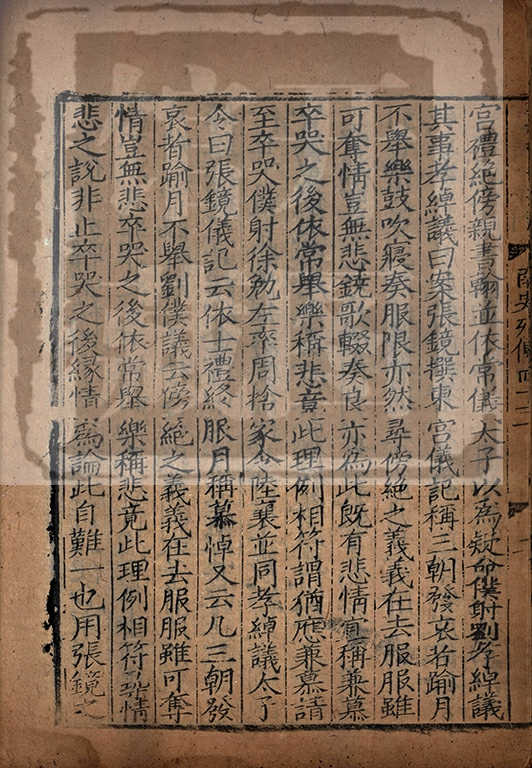 宫禮絶傍親書翰並依常儀太子以為疑命僕射劉孝綽議
其事孝綽議曰案張鏡撰東宫儀記稱三朝發哀者踰月
不舉樂鼓吹寢奏服限亦然尋傍絶之義義在去服服雖
可奪情豈無悲鐃歌輟奏良亦為此旣有悲情宜稱兼慕
卒哭之後依常舉樂稱悲竟此理例相符謂猶應兼慕請
至卒哭僕射徐勉左率周捨家令陸襄並同孝綽議太子
令曰張鏡儀記云依士禮終服月稱慕悼又云凡三朝發
哀者踰月不舉劉僕議云傍絶之義義在去服服雖可奪
情豈無悲卒哭之後依常舉樂稱悲竟此理例相符尋情
悲之説非止卒哭之後縁情為論此自難一也用張鏡之
南史列傳四十二